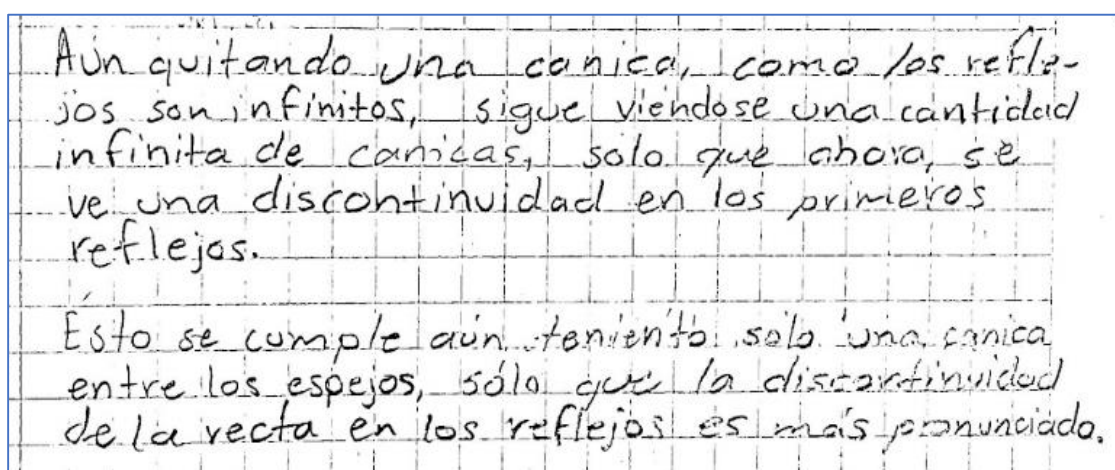 Aún quitando una canica, como los refle-
jos son infinitos, sigue viéndose una cantidad
infinita de canicas, solo que ahora, se
ve una discontinuidad en los primeros
reflejos.
Esto se cumple aún teniento solo una canica
entre los espejos, sólo que la discontinuidad
de la recta en los reflejos es más pronunciado.